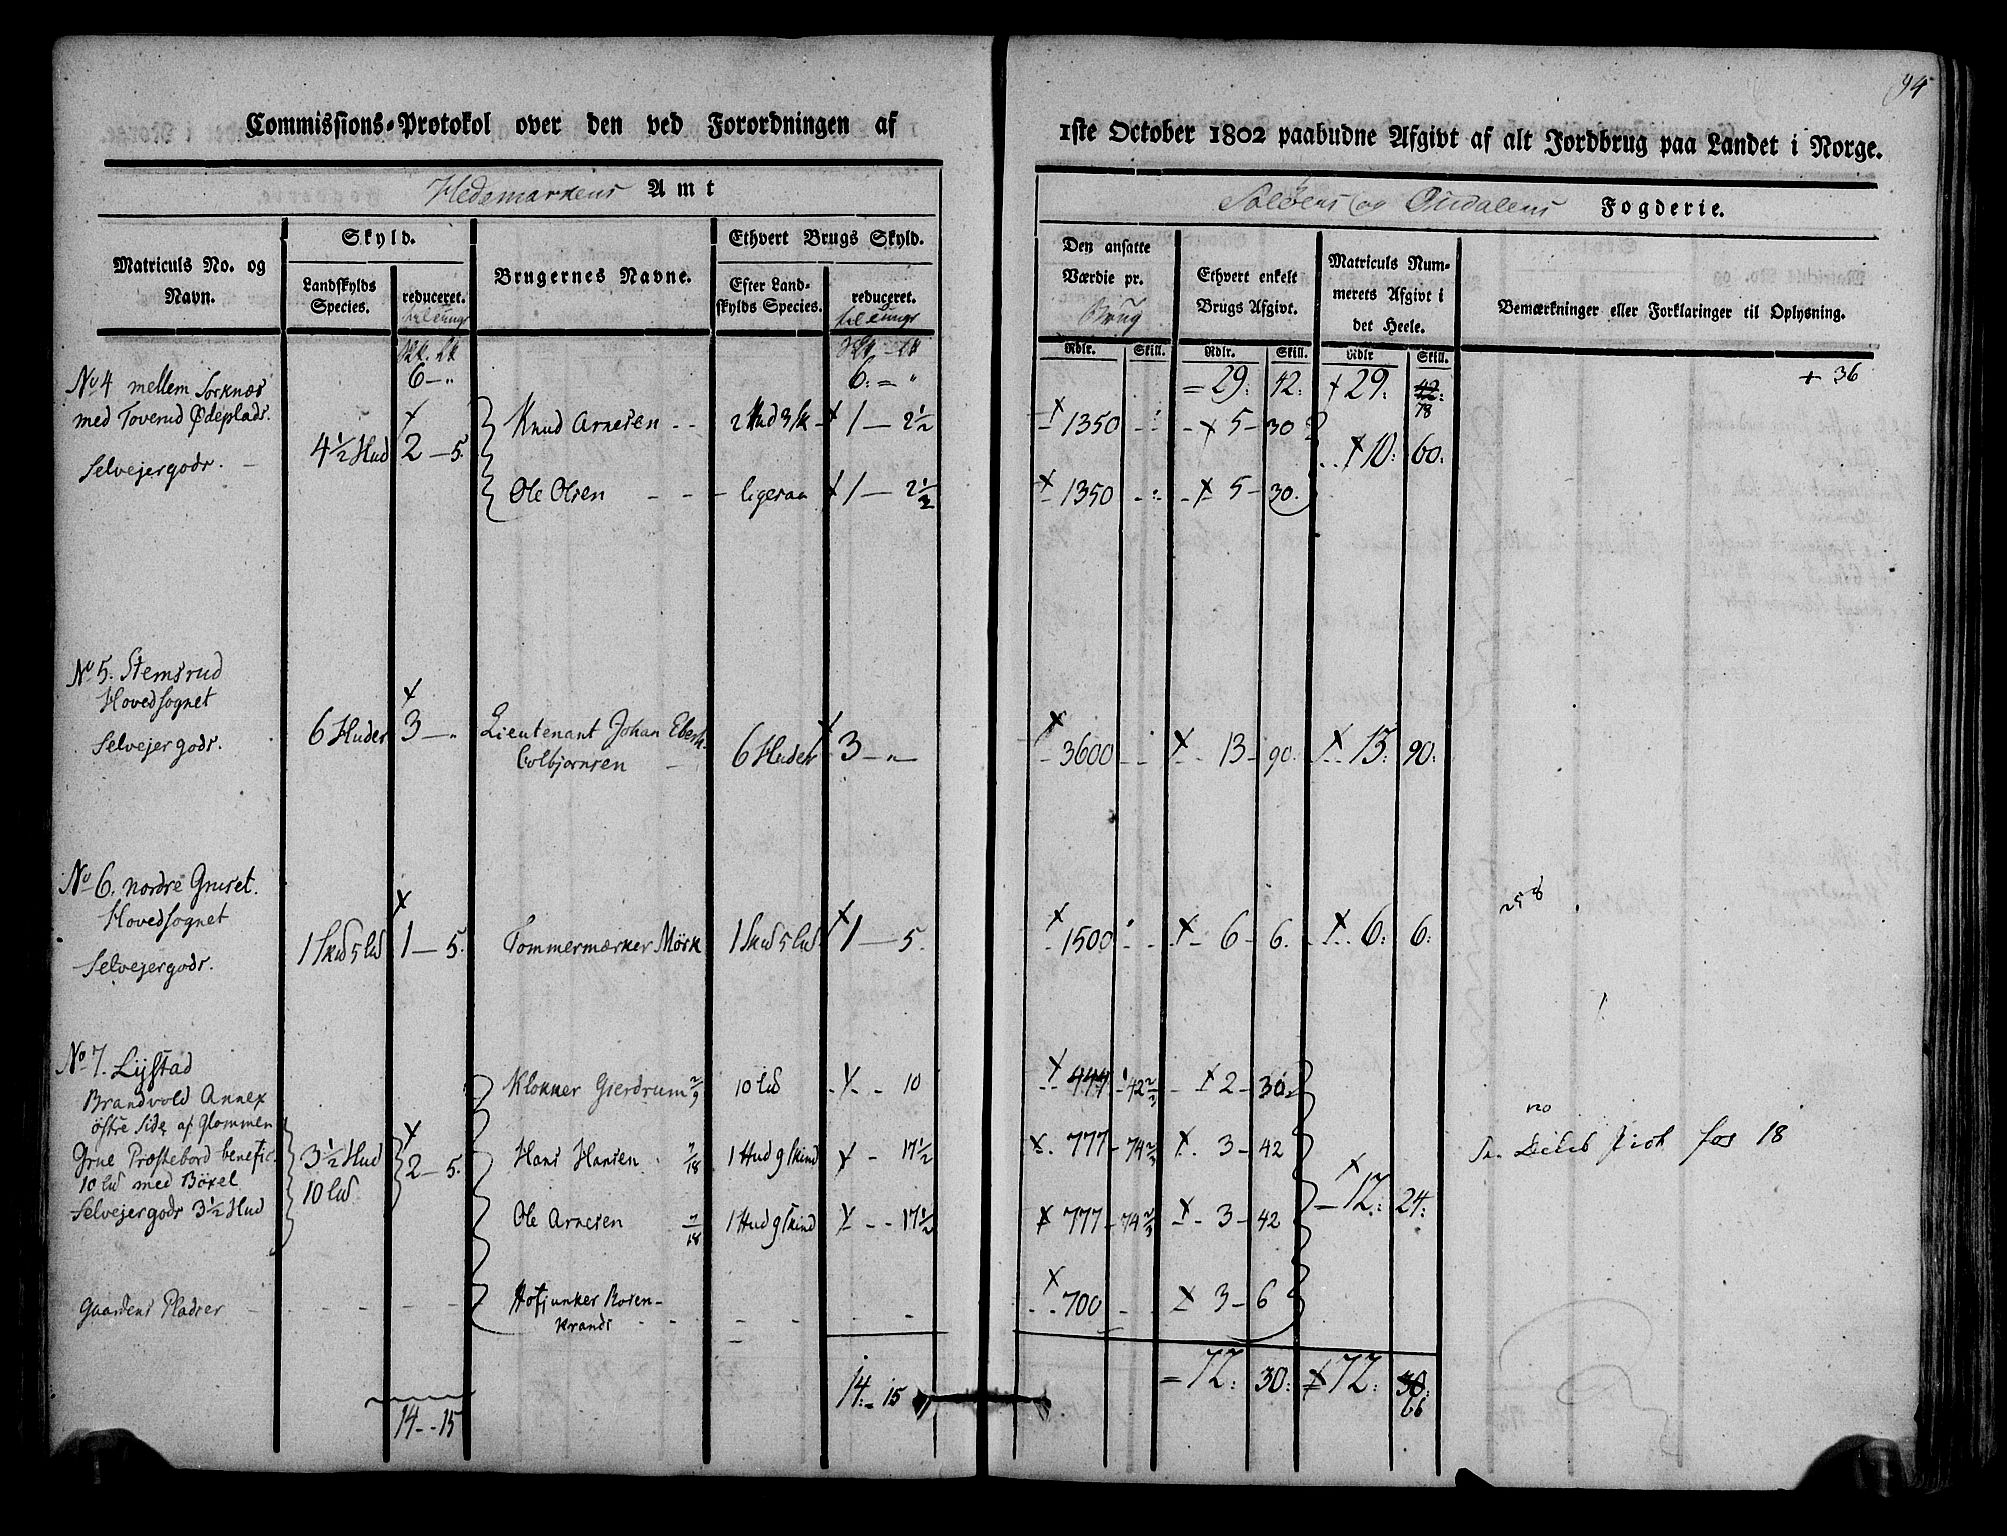 94
Commissions-Protokol over den ved Forordningen af
1ste October 1802 paabudne Afgivt af alt Jordbrug paa Landet i Norge.
Hedemarkens Amt
Soløens og Oudalens Fogderie.
Matriculs No. og Navn.
Skyld.
Landskylds Species.
reduceret.
Brugernes Navne.
Ethvert Brugs Skyld.
Efter Landskylds Species.
reduceret.
Den ansatte Værdie pr. Brug
Ethvert enkelt Brugs Afgivt.
Matriculs Nummerets Afgivt i det Heele.
Bemærkninger eller Forklaringer til Oplysning.
Rdlr. Skill. Rdlr. Skill. Rdlr Skill.
6 — „ 6: = „ = 29: 42: + 29: 42: 18 + 36
No 4 mellem Sorknæs
med Toverud Ødeplads.
Selvejergods. — 4 1/2 Hud 2 — 5.
Knud Arnesen - - 2 Hud 3 sk 1 — 2 1/2 1350 5 - 30
10: 60:
Ole Olsen - - - ligesaa 1 — 2 1/2 1350 5 - 30.
No 5. Stemsrud
Hovedsognet
Selvejergods. 6 Huder 3 — „ Lieutenant Johan Eberh.
Colbjørnsen — 6 Huder 3 — „ 3600 13 - 90. 13: 90:
No 6. nordre Gruset.
Hovedsognet
Selvejergods. 1 Skud 5 lud 1 — 5. Tommermærker Mörk 1 Skud 5 lud 1 — 5. 1500 6 - 6. 6: 6:
258
No 7. Lystad
Brandvold Annex
östre Side af Glommen
Grue Præstebord benefic.
10 lud med Böxel
Selvejergods 3 1/2 Hud
3 1/2 Hud
10 lud
2 — 5.
Klokker Gierdrum 2/9 10 lud 10 444 - 42 2/3 2 - 30
Hans Hansen 7/18 1 Hud 9 Skind 17 1/2 777 - 74 2/3 3 - 42
12: 24:
no
18
Ole Arnesen 7/18 1 Hud 9 Skind 17 1/2 777 - 74 2/3 3 - 42
Gaardens Pladser - - - - - Hofjunker Rosen-
krands - - - - 700 3 - 6
14 - 15 14 - 15 = 72: 30: 72: 30: 66